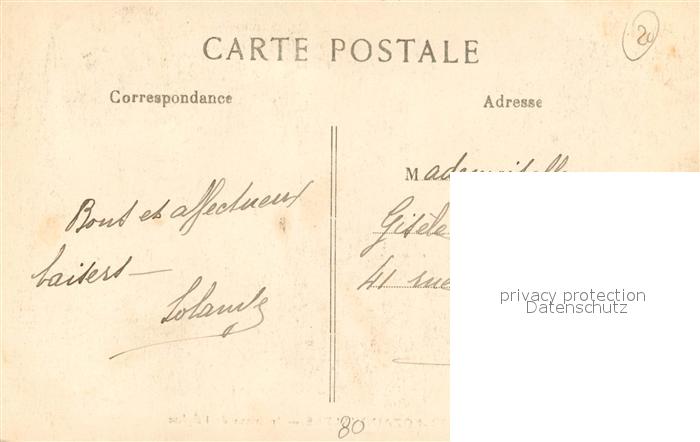 20
CARTE POSTALE
Correspondance
Adresse
Mademoiselle
Gisèle
41 rue
Bons et affectueux
baisers —
80
privacy protection
Datenschutz